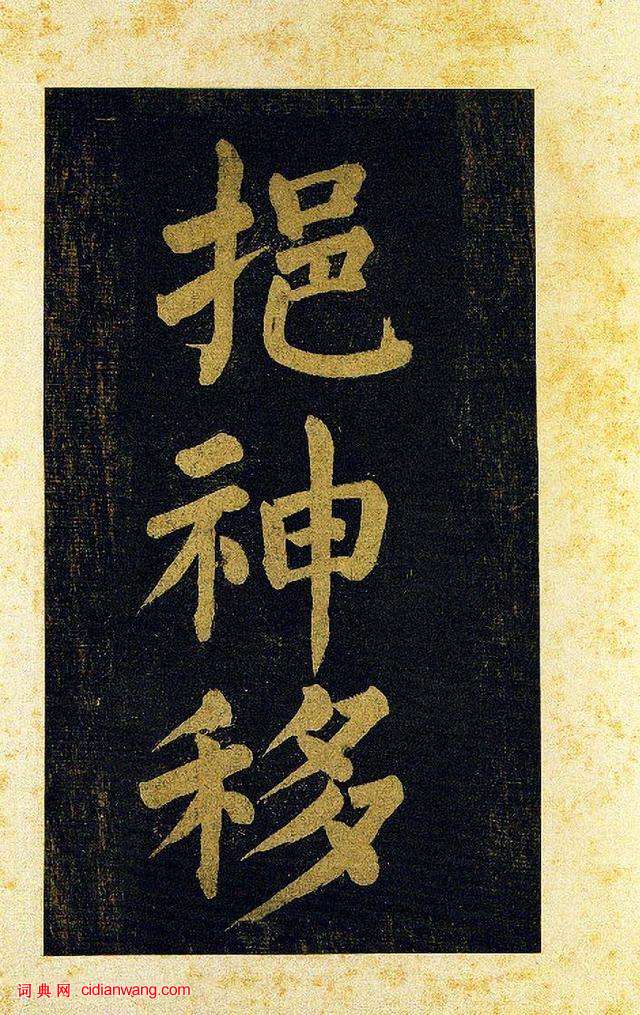 挹神移
词典网 cidianwang.com